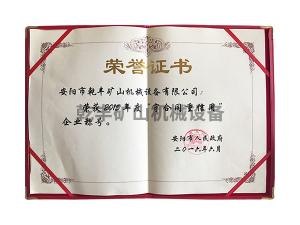 荣誉证书
安阳市乾丰矿山机械设备有限公司:
荣获2015年度“守合同重信用”
企业称号。
乾丰矿山机械设备
安阳市人民政府
二〇一六年六月